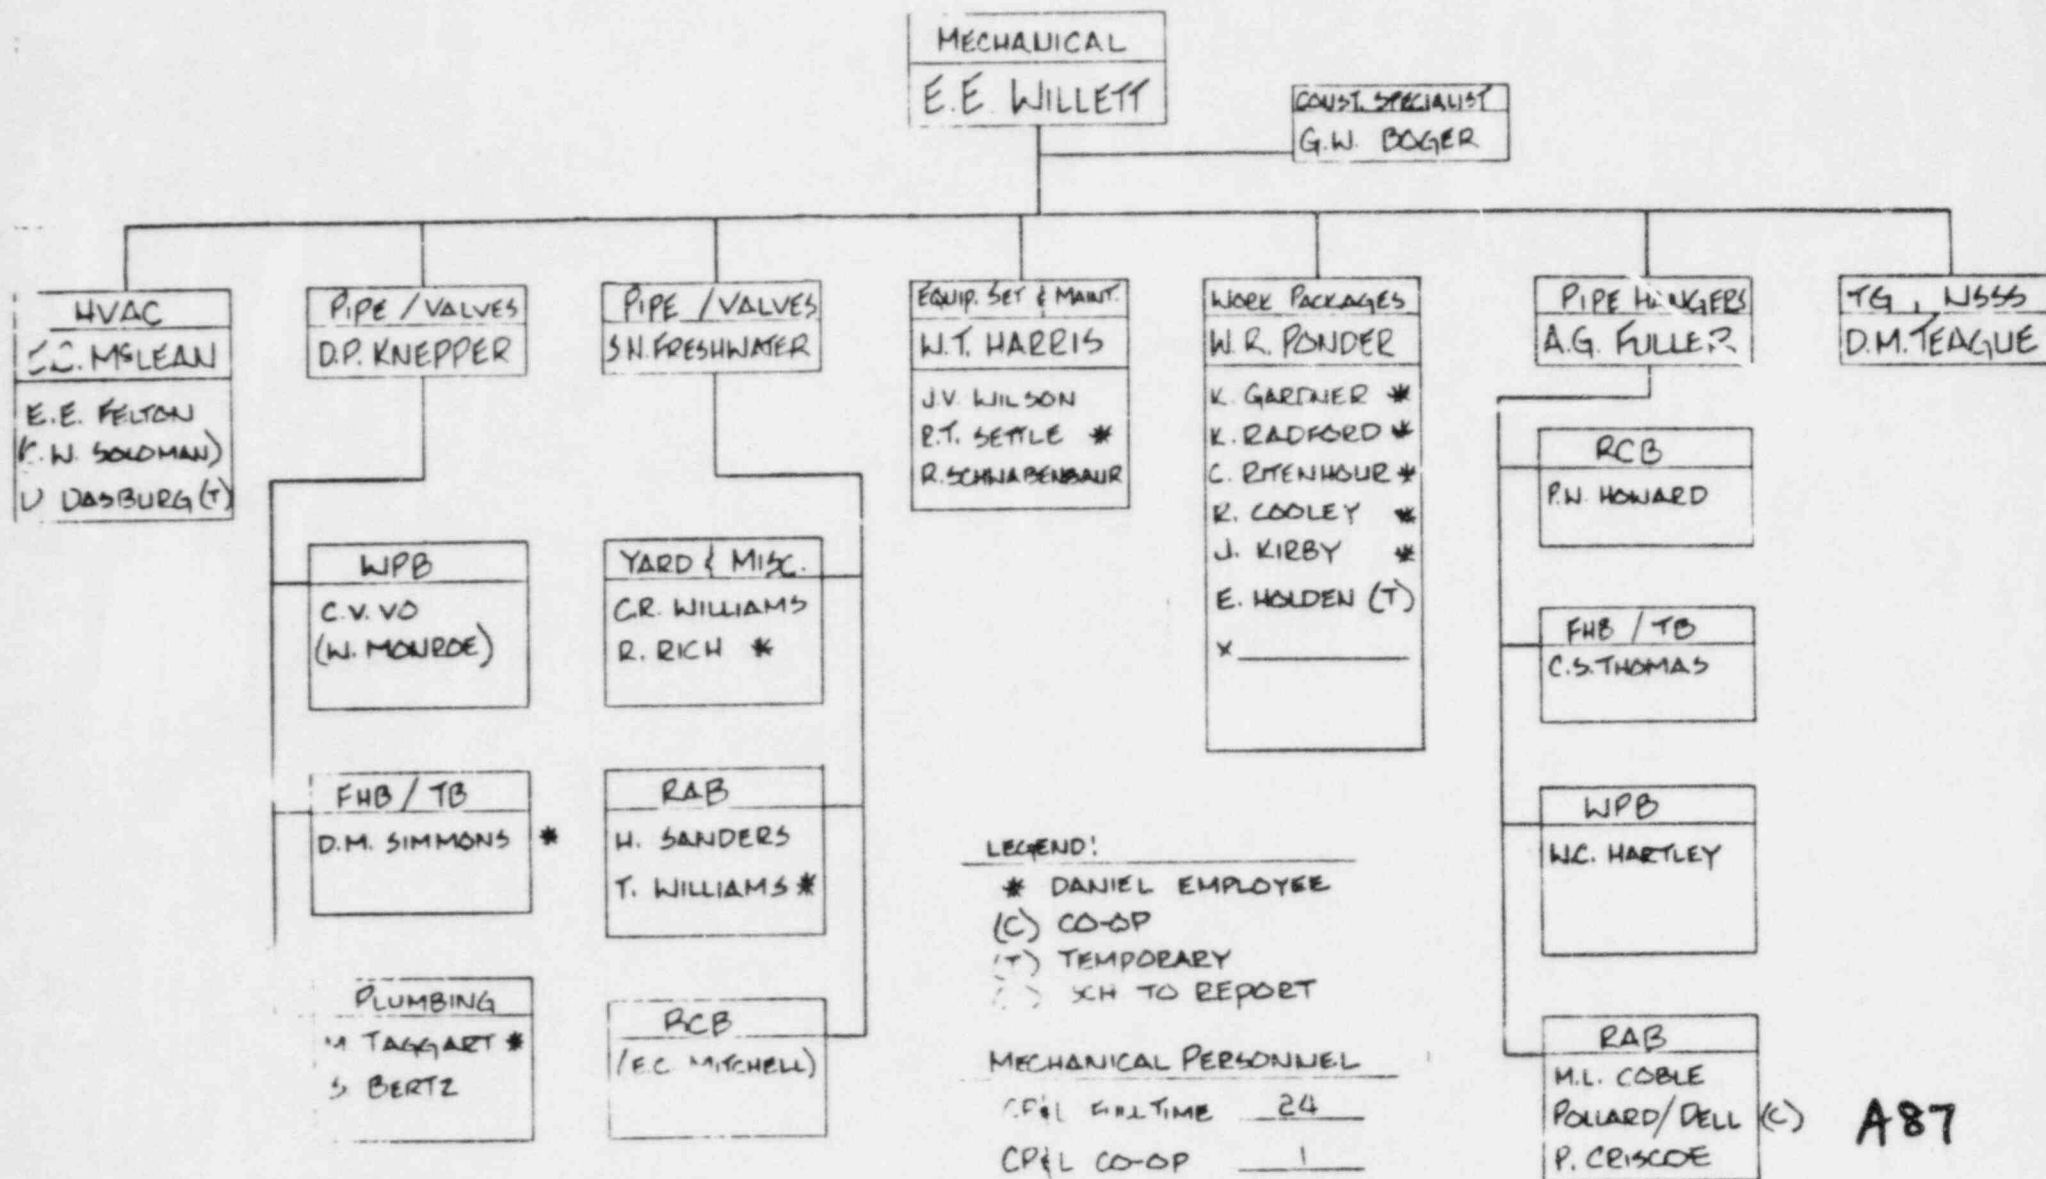 MECHANICAL
E.E. WILLETT
CONST. SPECIALIST
G.W. BOGER
HVAC
MCLEAN
E.E. FELTON
W. SOLOMAN)
DASBURG (T)
PIPE / VALVES
D.P. KNEPPER
WPB
C.V. VO
(W. MONROE)
FHB / TB
D.M. SIMMONS *
PLUMBING
M TAGGART *
S BERTZ
PIPE / VALVES
S.N. FRESHWATER
YARD & MISC.
C.R. WILLIAMS
R. RICH *
RAB
H. SANDERS
T. WILLIAMS *
RCB
(E.C. MITCHELL)
EQUIP. SET & MAINT.
W.T. HARRIS
J.V. WILSON
R.T. SETTLE *
R. SCHWABENBAUR
WORK PACKAGES
W.R. PONDER
K. GARDNER *
K. RADFORD *
C. RITENHOUR *
R. COOLEY *
J. KIRBY *
E. HOLDEN (T)
X
PIPE HANGERS
A.G. FULLER
RCB
P.W. HOWARD
FHB / TB
C.S. THOMAS
WPB
W.C. HARTLEY
RAB
M.L. COBLE
POLLARD/DELL (C)
P. CRISCOE
TG, NSSS
D.M. TEAGUE
LEGEND:
* DANIEL EMPLOYEE
(C) CO-OP
(T) TEMPORARY
( ) SCH TO REPORT
MECHANICAL PERSONNEL
CP&L FULL TIME 24
CP&L CO-OP 1
A87